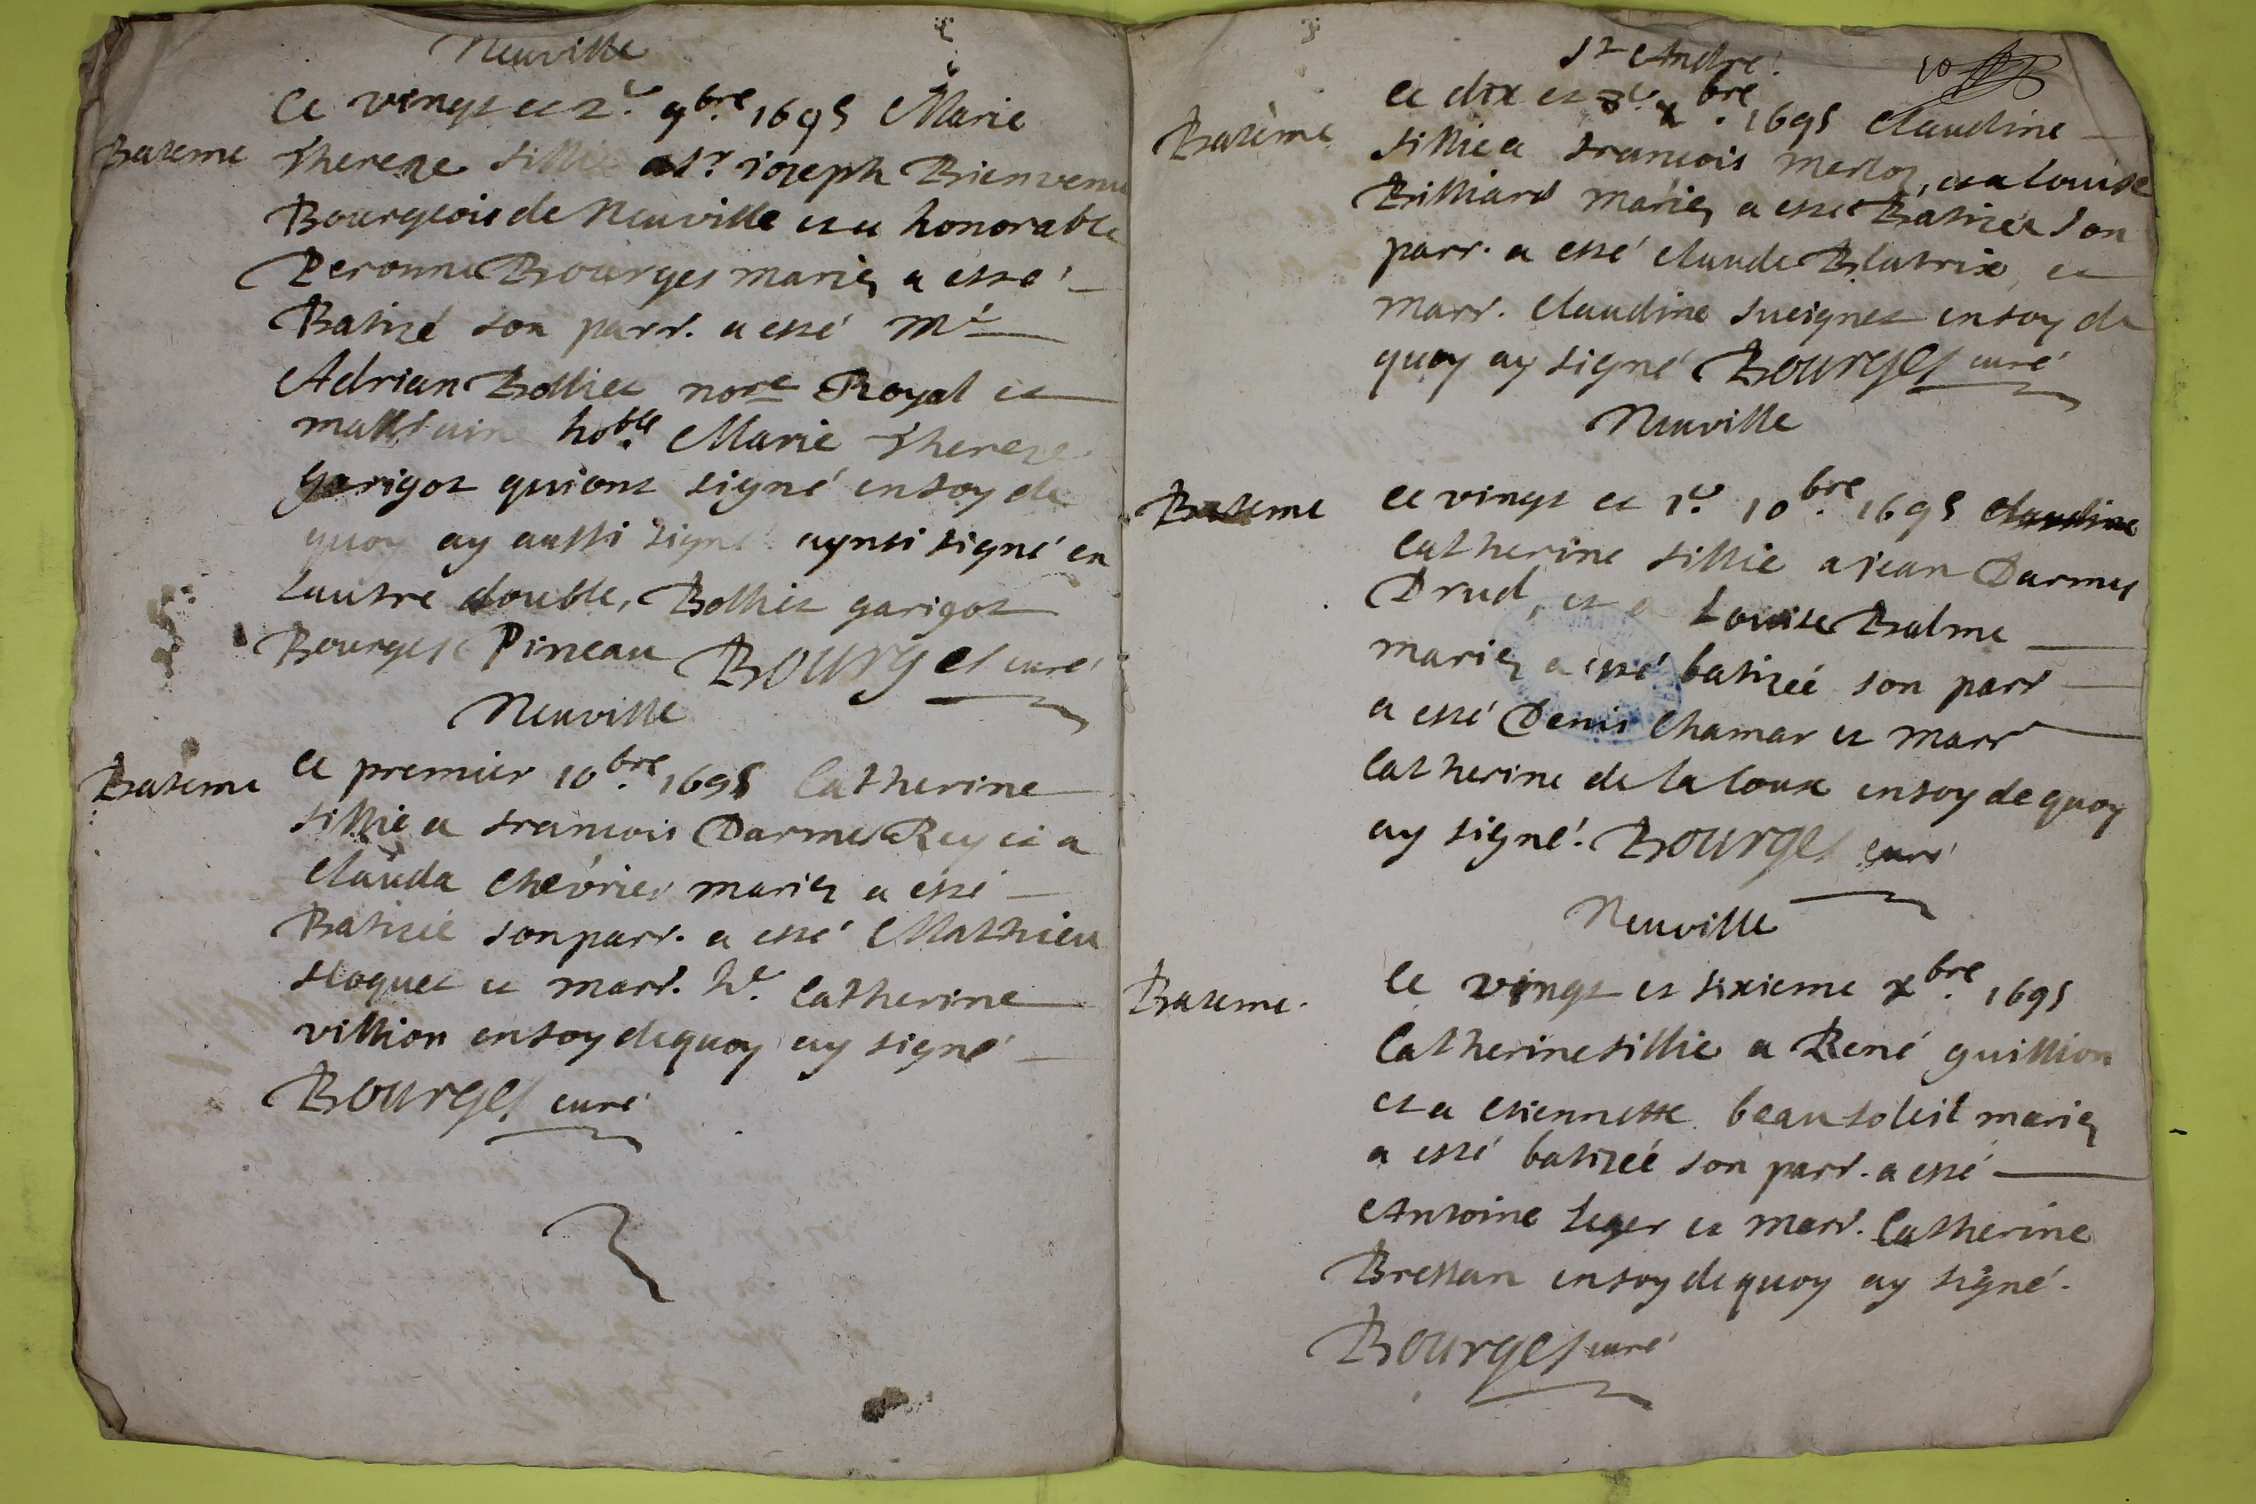 Neuville
Bateme
Ce vingt et 2e. 9bre. 1695 Marie
Therese fillie a sr. ioseph Bienvenu
Bourgeois de Neuville et a honorable
Peronne Bourges mariez a esté
Batizé son parr. a esté Me
Adrian Bolliet nore Royal et
marraine hoble. Marie Therese
garigot qui ont signé en foy de
quoy ay aussi signé aynsi signé en
lautre double, Bolliet garigot
Bourges Pineau Bourges curé
Neuville
Bateme
Ce premier 10bre. 1695 Catherine
fillie a francois Darmes Rey et a
Clauda Chevrier mariez a esté
Batizée son parr. a esté Mathieu
floquet et marr. he. Catherine
villion en foy de quoy ay signé
Bourges curé
St Andre.
10
Batéme
Ce dix et xbre. 1695 Claudine
fillie a francois merloz, et a Louise
Billiard mariez a esté Batizée son
parr. a esté Claude Blatrix et
marr. Claudine fueignet en foy de
quoy ay signé Bourges curé
Neuville
Bateme
Ce vingt et 1e. 10bre. 1695 Claudine
Catherine fillie a jean Darmes
Drud, et a Louise Balme
mariez a esté batizée son parr
a esté Denis Chamar et marr
Catherine de la Coux en foy de quoy
ay signé. Bourges curé
Neuville
Bateme.
Ce vingt et sixieme xbre. 1695
Catherine fillie a René guillion
et a estiennette beausoleil mariez
a esté batizée son parr. a esté
Antoine Leger et marr. Catherine
Bressan en foy de quoy ay signé.
Bourges curé